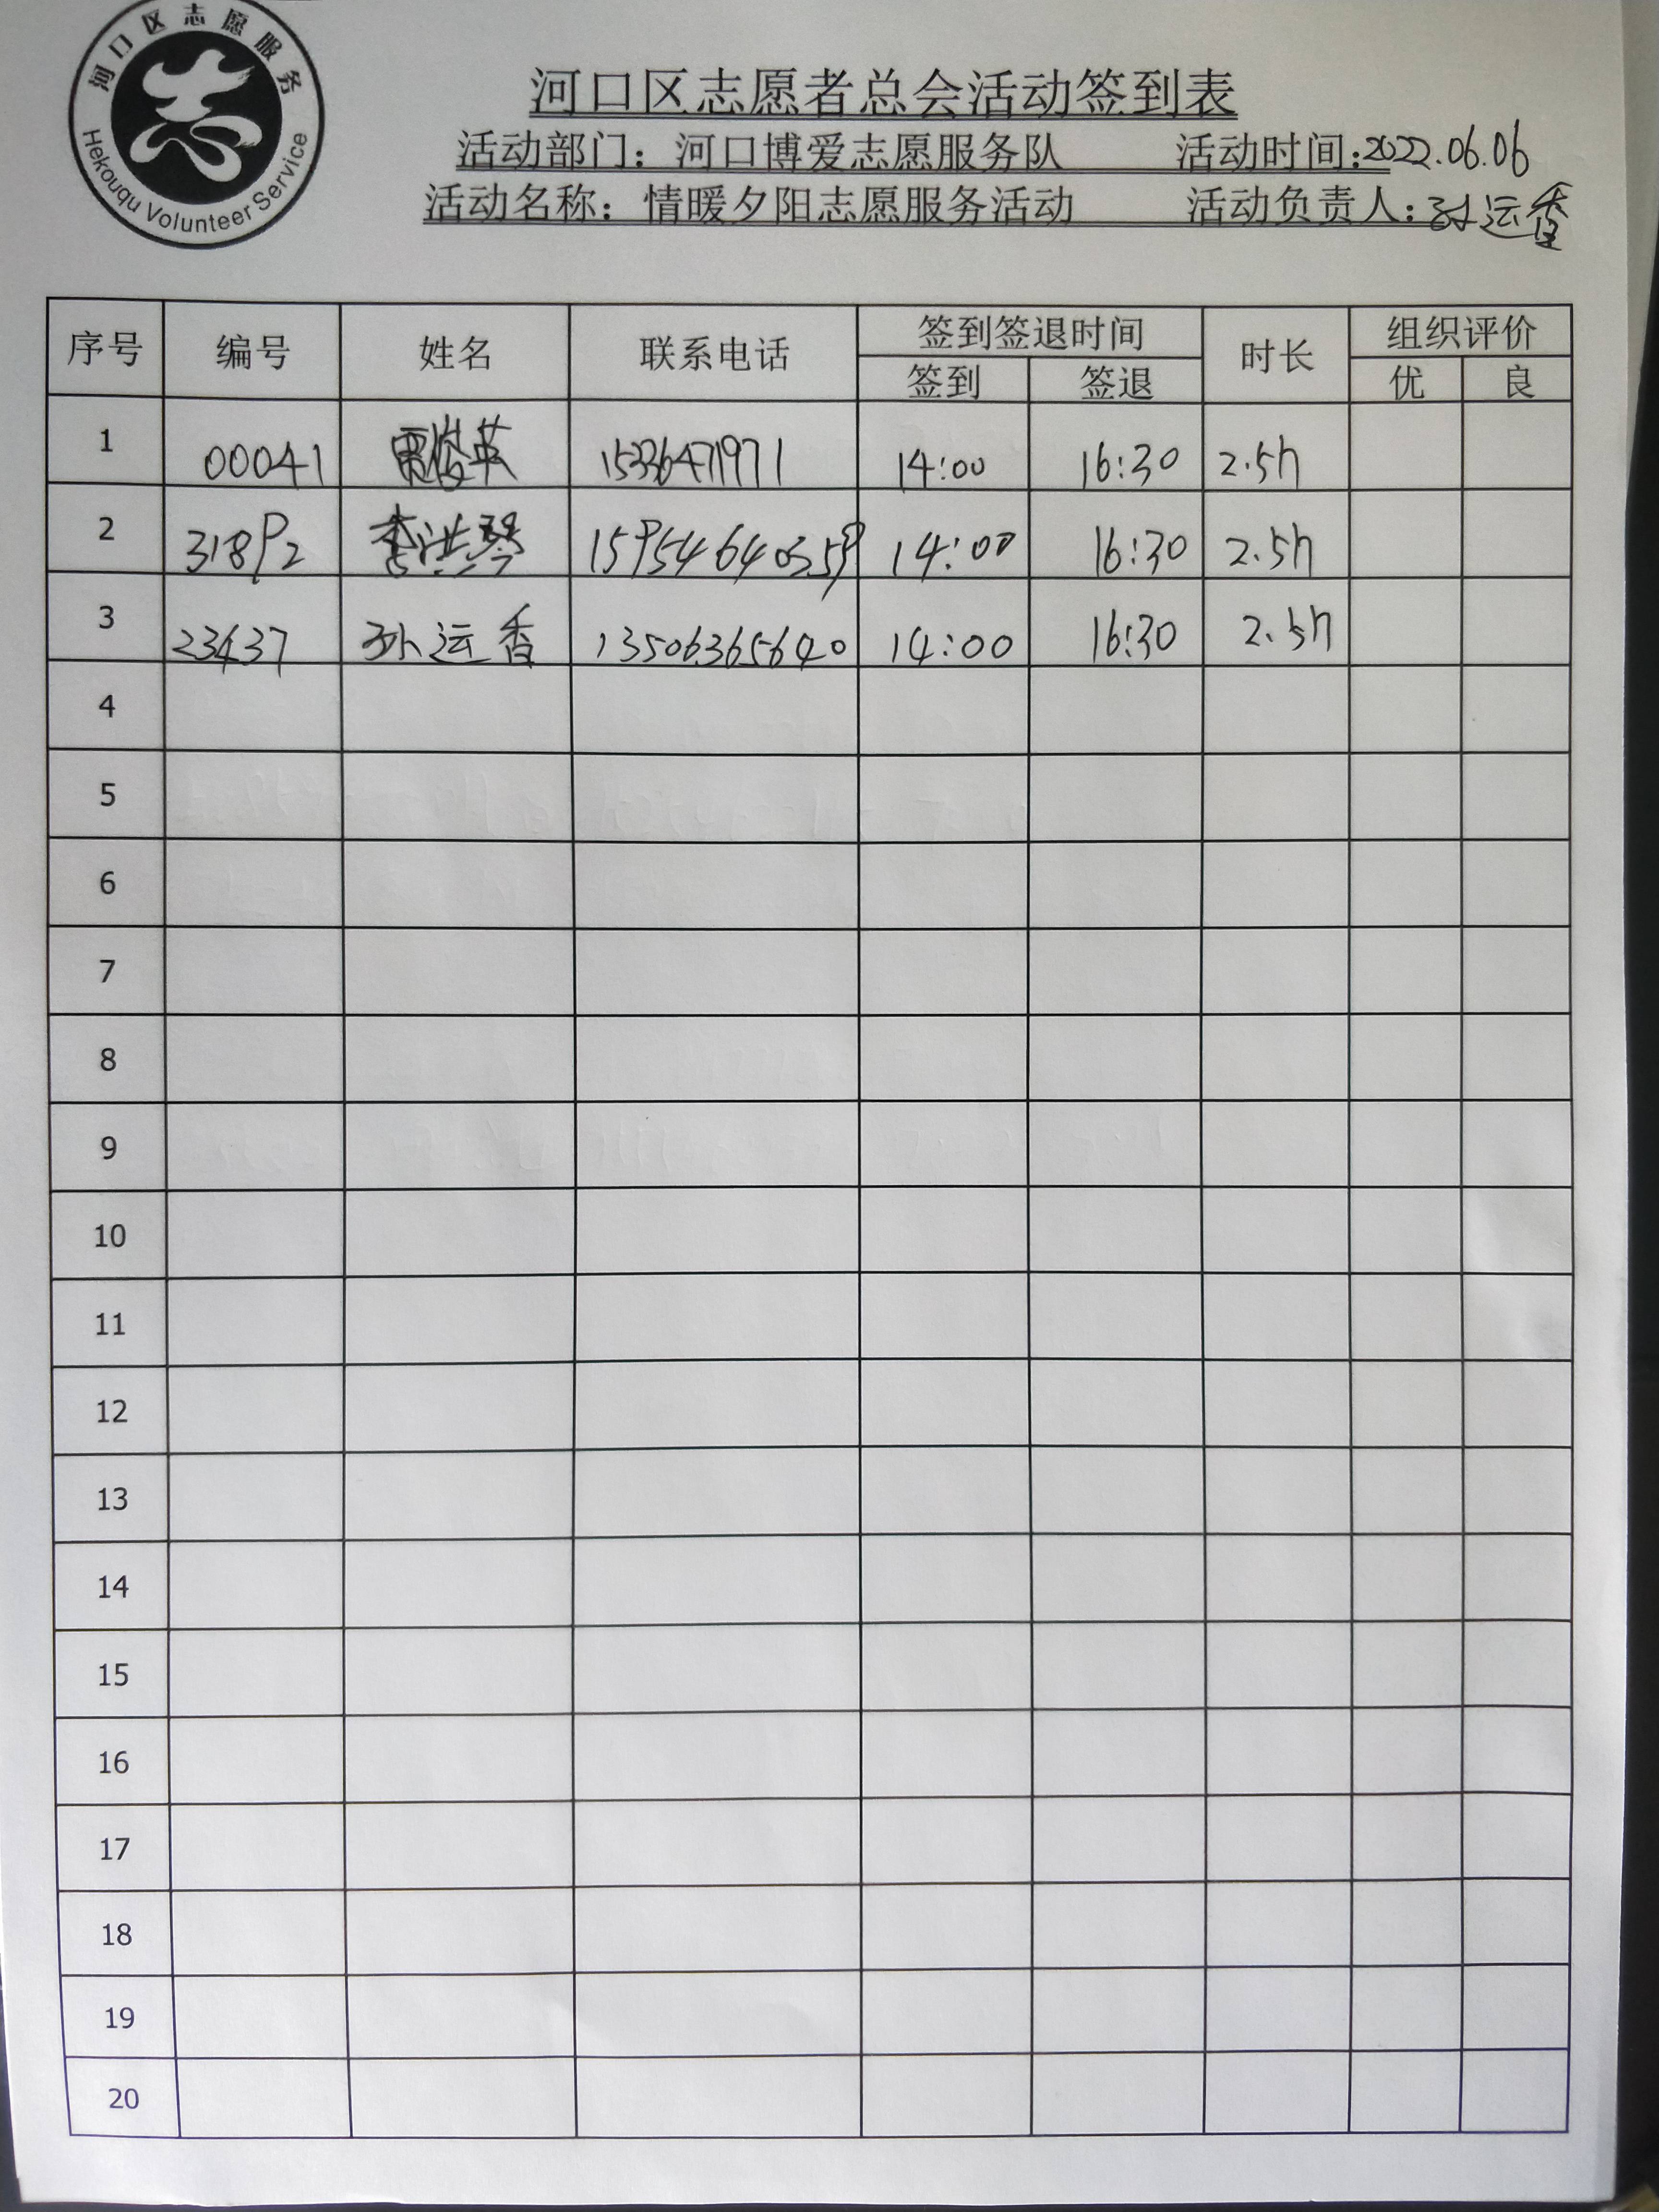 河口区志愿服务
Hekouqu Volunteer Service
河口区志愿者总会活动签到表
活动部门：河口博爱志愿服务队 活动时间:2022.06.06
活动名称：情暖夕阳志愿服务活动 活动负责人：孙运香
序号 编号 姓名 联系电话 签到签退时间 时长 组织评价
签到 签退 优 良
1 00041 英 15336471971 14:00 16:30 2.5h
2 31892 李洪琴 15954640359 14:00 16:30 2.5h
3 23437 孙运香 13506365640 14:00 16:30 2.5h
4
5
6
7
8
9
10
11
12
13
14
15
16
17
18
19
20